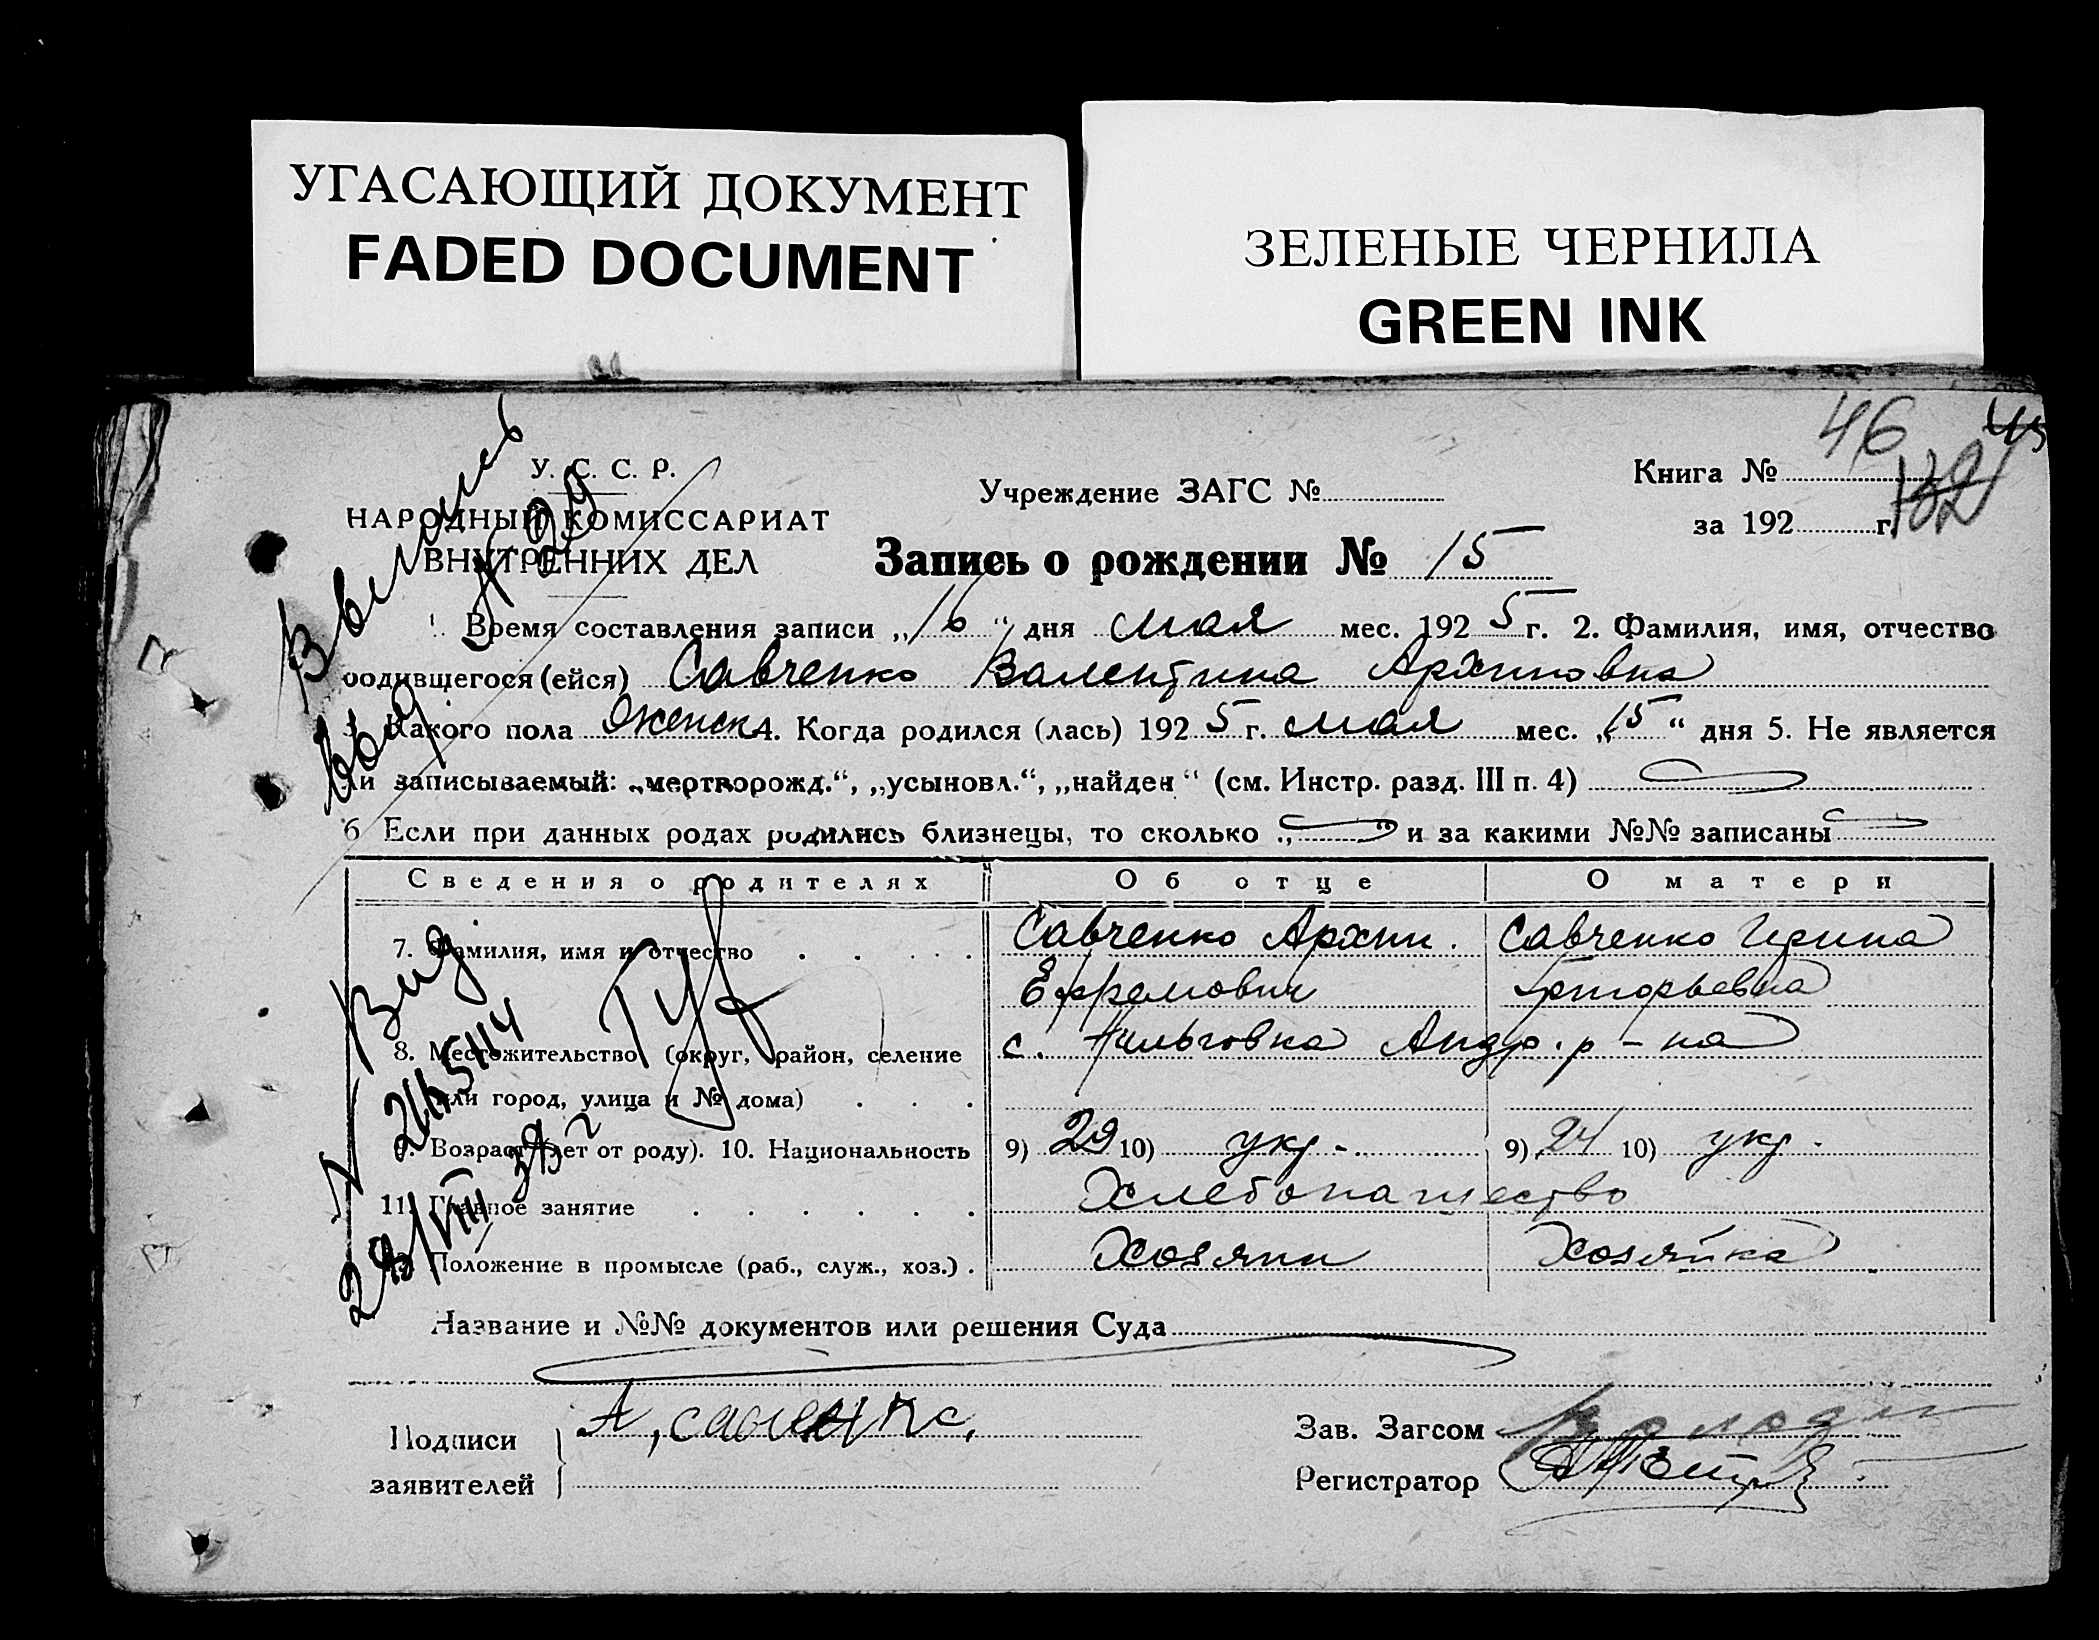 УГАСАЮЩИЙ ДОКУМЕНТ
FADED DOCUMENT
ЗЕЛЕНЫЕ ЧЕРНИЛА
GREEN INK
46
132
У. С. С. Р.
НАРОДНЫЙ КОМИССАРИАТ
ВНУТРЕННИХ ДЕЛ
Учреждение ЗАГС №
Книга №
за 192 г.
Запись о рождении № 15
1. Время составления записи „16“ дня мая мес. 1925 г. 2. Фамилия, имя, отчество
родившегося (ейся) Савченко Валентина Архиповна
3. Какого пола женск 4. Когда родился (лась) 1925 г. мая мес. „15“ дня 5. Не является
ли записываемый: „мертворожд.“, „усыновл.“, „найден“ (см. Инстр. разд. III п. 4)
6 Если при данных родах родились близнецы, то сколько „ “ и за какими №№ записаны
Сведения о родителях Об отце О матери
7. Фамилия, имя и отчество Савченко Архип. Савченко Ирина
Ефремович Григорьевна
8. Местожительство (округ, район, селение с. Андр. р-на
или город, улица и № дома)
9. Возраст (лет от роду). 10. Национальность 9) 29 10) укр. 9) 24 10) укр.
11. Главное занятие Хлебопашество
Положение в промысле (раб., служ., хоз.) Хозяин Хозяйка
Название и №№ документов или решения Суда
Подписи
заявителей
Зав. Загсом
Регистратор